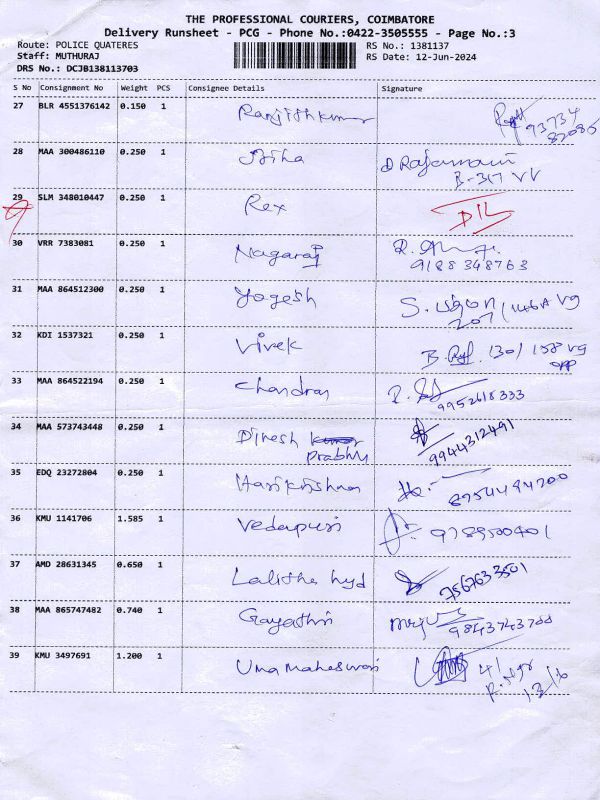 THE PROFESSIONAL COURIERS, COIMBATORE
Delivery Runsheet - PCG - Phone No.:0422-3505555 - Page No.:3
Route: POLICE QUATERES RS No.: 1381137
Staff: MUTHURAJ RS Date: 12-Jun-2024
DRS No.: DCJB138113703
S No Consignment No Weight PCS Consignee Details Signature
27 BLR 4551376142 0.150 1 Ranjithkumar 93734
28 MAA 300486110 0.250 1
B-317 VV
29 SLM 348010447 0.250 1 Rex
30 VRR 7383081 0.250 1 Nagaraj
9188348763
31 MAA 864512300 0.250 1 Yogesh
32 KDI 1537321 0.250 1 Vivek
33 MAA 864522194 0.250 1 Chandran
9952618333
34 MAA 573743448 0.250 1 Dinesh
prabhu 9944312491
35 EDQ 23272804 0.250 1 Harikrishnan 8754494700
36 KMU 1141706 1.585 1 Vedapuri
37 AMD 28631345 0.650 1 Lalitha hyd 7567633501
38 MAA 865747482 0.740 1 Gayathri
9843743700
39 KMU 3497691 1.200 1 Uma maheswari